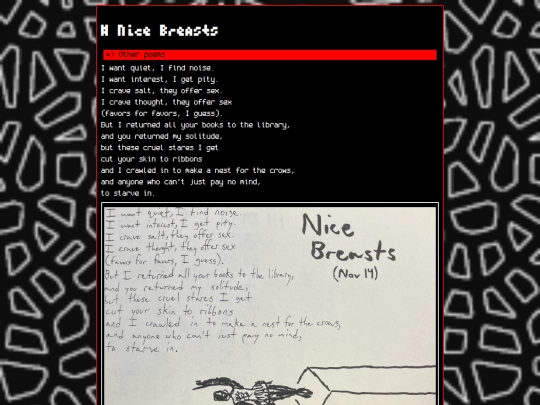 # Nice Breasts
=> Other poems
I want quiet, I find noise.
I want interest, I get pity.
I crave salt, they offer sex.
I crave thought, they offer sex
(favors for favors, I guess).
But I returned all your books to the library,
and you returned my solitude,
but these cruel stares I get
cut your skin to ribbons
and I crawled in to make a nest for the crows,
and anyone who can't just pay no mind,
to starve in.
Nice
Breasts
(Nov 14)
I want quiet, I find noise.
I want interest, I get pity.
I crave salt, they offer sex.
I crave thought, they offer sex
(favors for favors, I guess).
But I returned all your books to the library,
and you returned my solitude,
but these cruel stares I get
cut your skin to ribbons
and I crawled in to make a nest for the crows,
and anyone who can't just pay no mind,
to starve in.